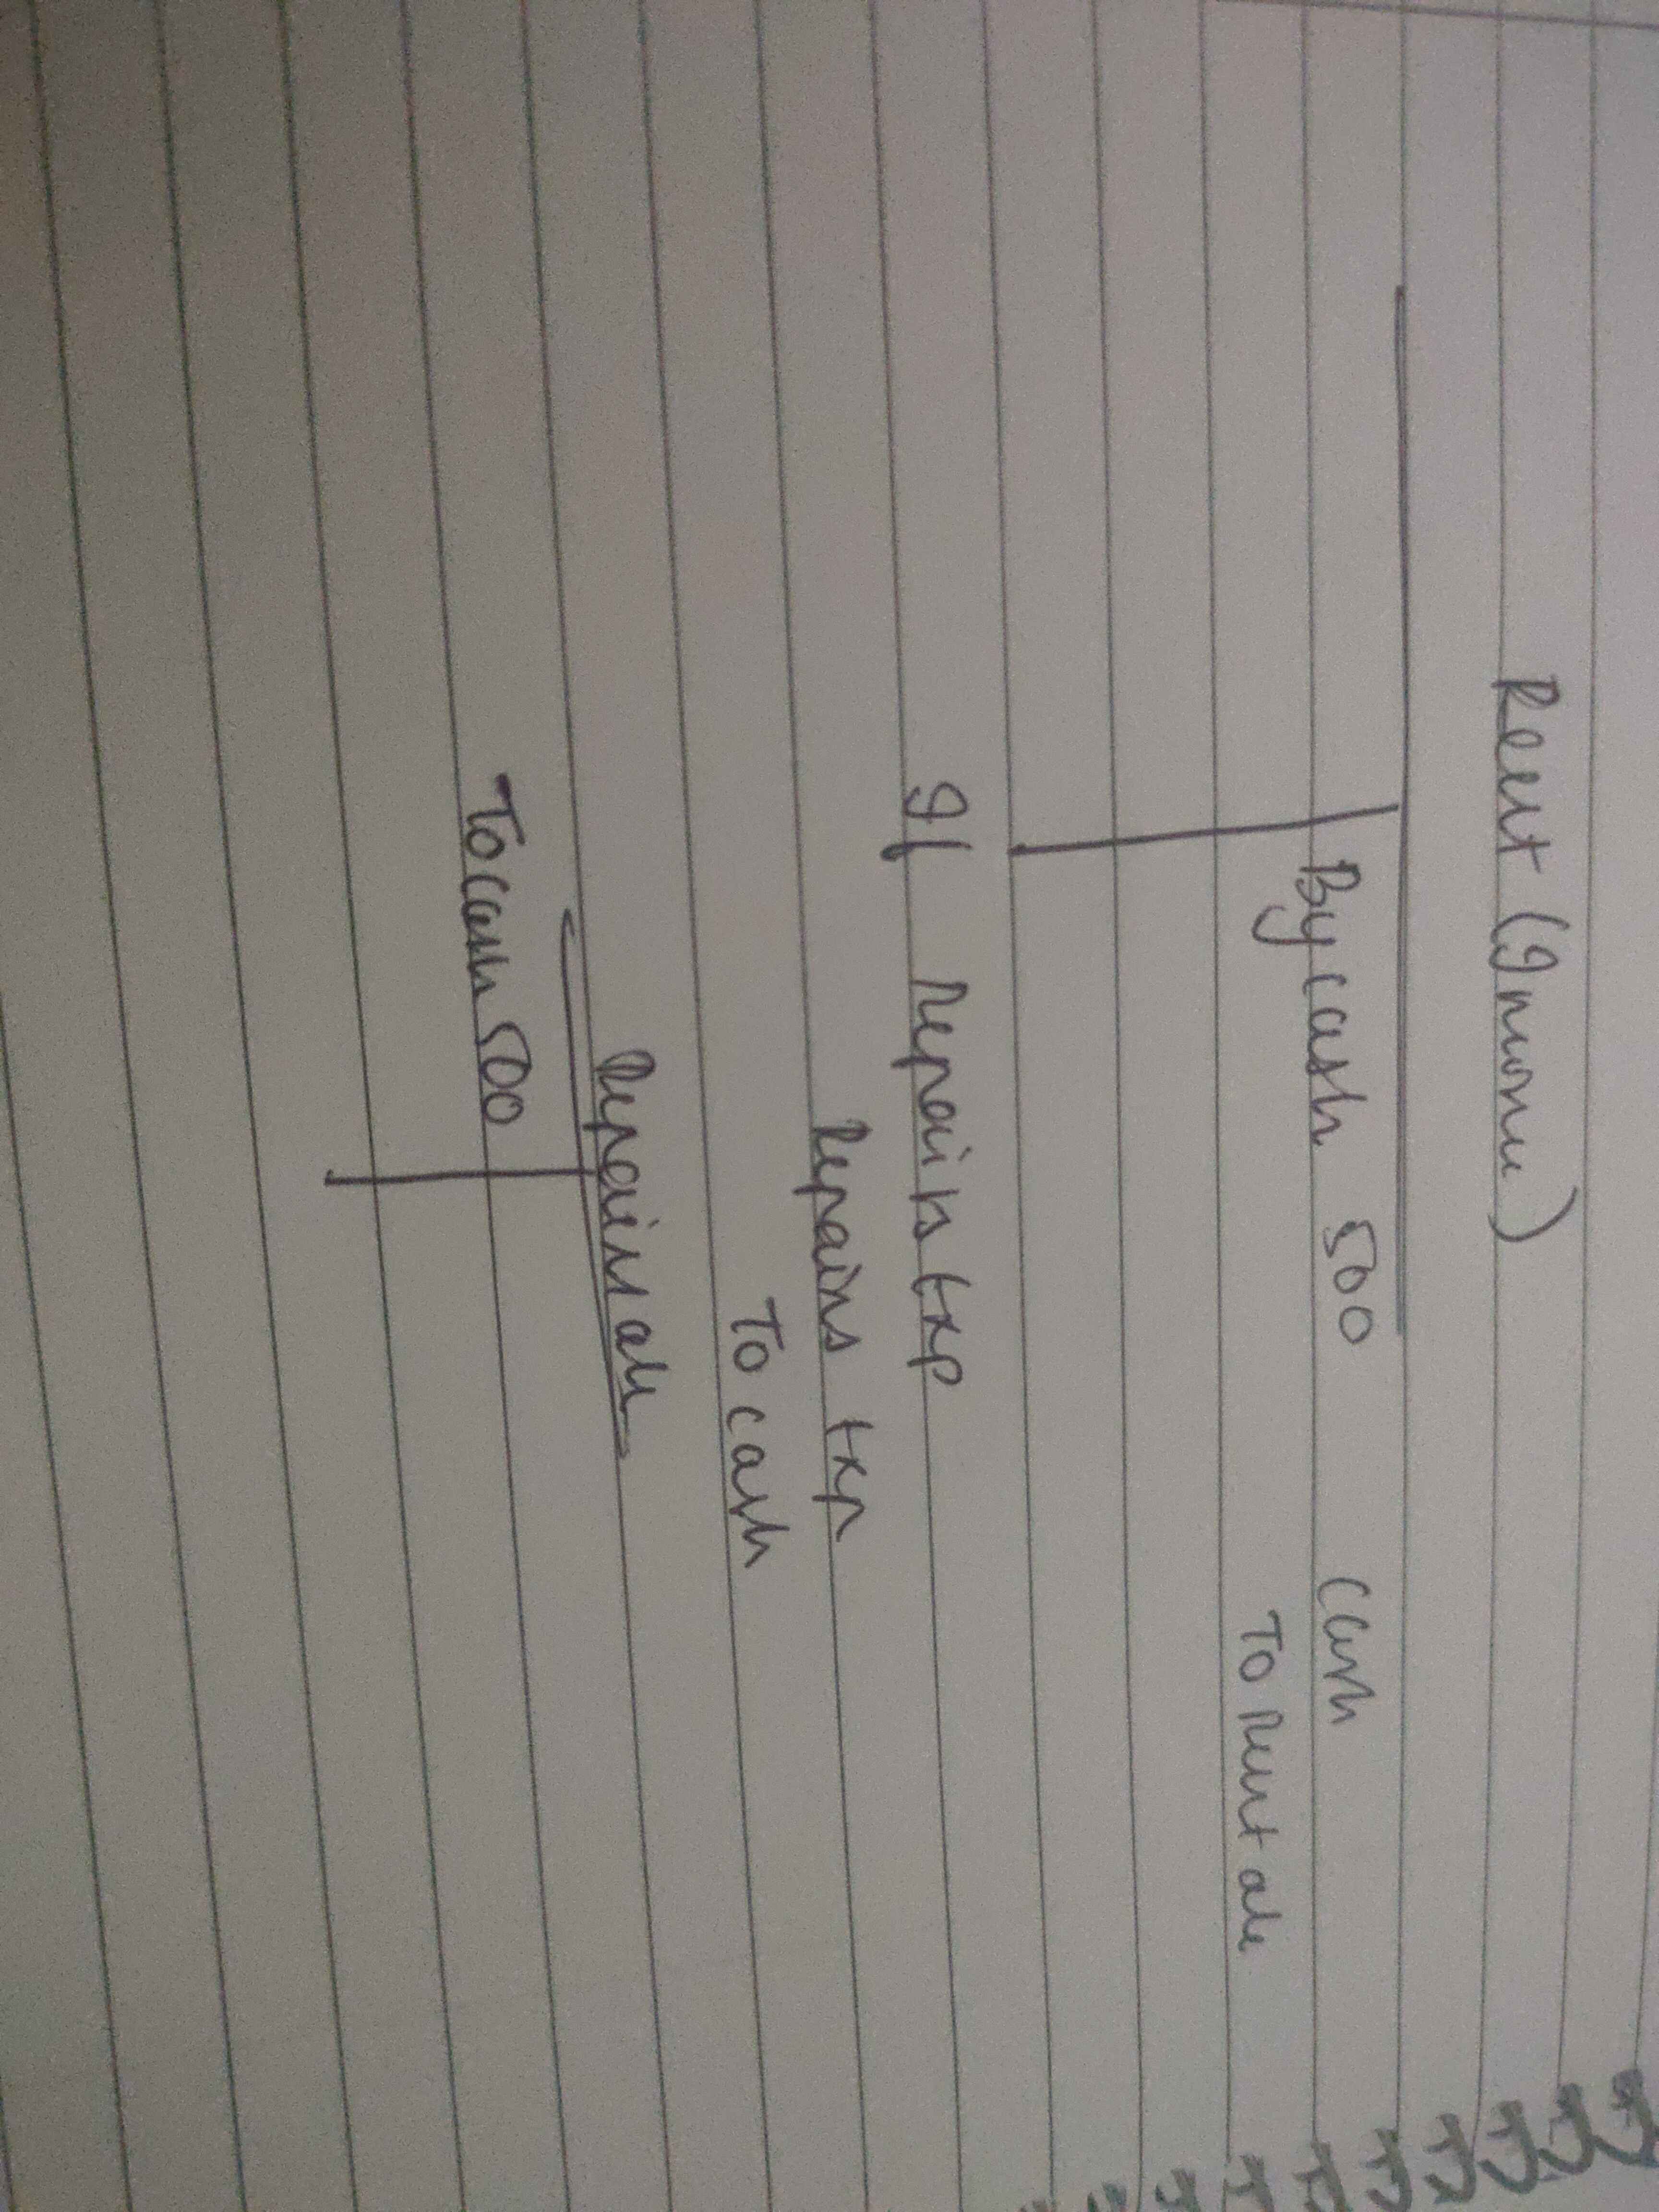 Rent (Income)
By cash 500 Cash
To Rent a/c
If repairs Exp
Repairs Exp
To cash
Repairs a/c
To cash 500